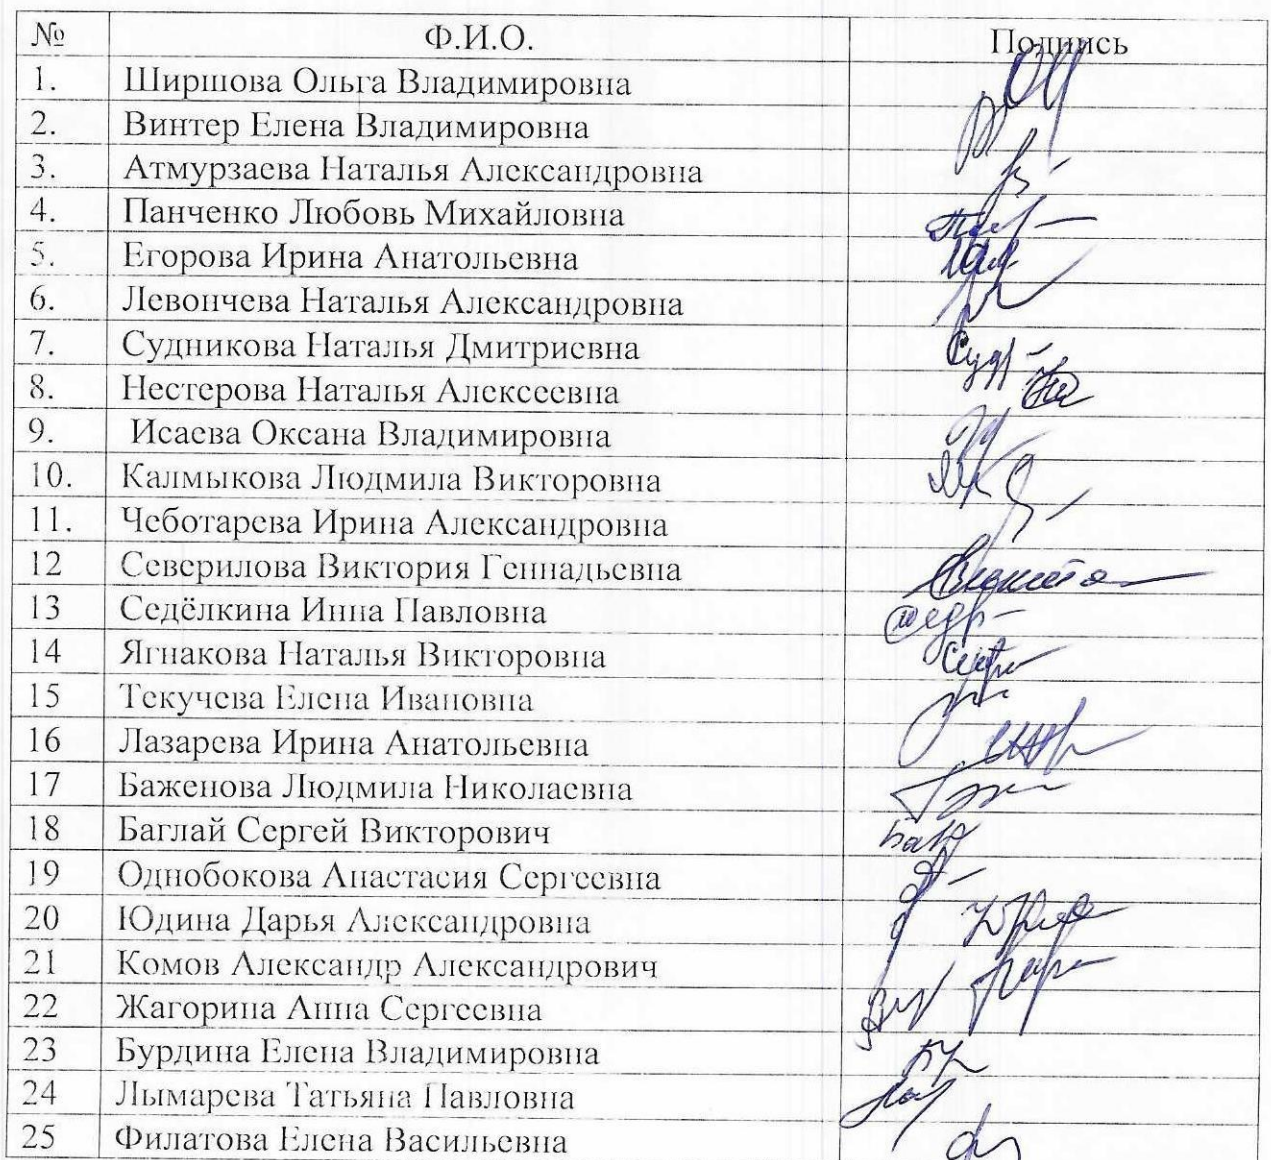 № Ф.И.О. Подпись
1. Ширшова Ольга Владимировна
2. Винтер Елена Владимировна
3. Атмурзаева Наталья Александровна
4. Панченко Любовь Михайловна
5. Егорова Ирина Анатольевна
6. Левончева Наталья Александровна
7. Судникова Наталья Дмитриевна
8. Нестерова Наталья Алексеевна
9. Исаева Оксана Владимировна
10. Калмыкова Людмила Викторовна
11. Чеботарева Ирина Александровна
12 Северилова Виктория Геннадьевна
13 Седёлкина Инна Павловна
14 Ягнакова Наталья Викторовна
15 Текучева Елена Ивановна
16 Лазарева Ирина Анатольевна
17 Баженова Людмила Николаевна
18 Баглай Сергей Викторович
19 Однобокова Анастасия Сергеевна
20 Юдина Дарья Александровна
21 Комов Александр Александрович
22 Жагорина Анна Сергеевна
23 Бурдина Елена Владимировна
24 Лымарева Татьяна Павловна
25 Филатова Елена Васильевна